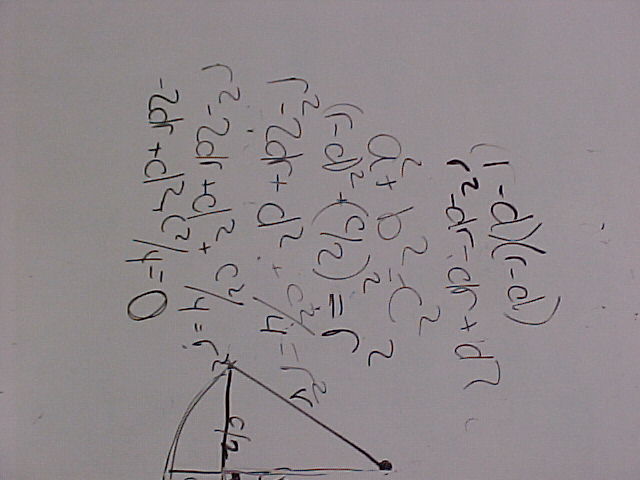 (r-d)(r-d)
r²-dr-dr+d²
a²+b²=c²
(r-d)²+(c/2)²=r²
r²-2dr+d²+c²/4=r²
r²-2dr+d²+c²/4=r²
-2dr+d²+c²/4=0
r
c/2